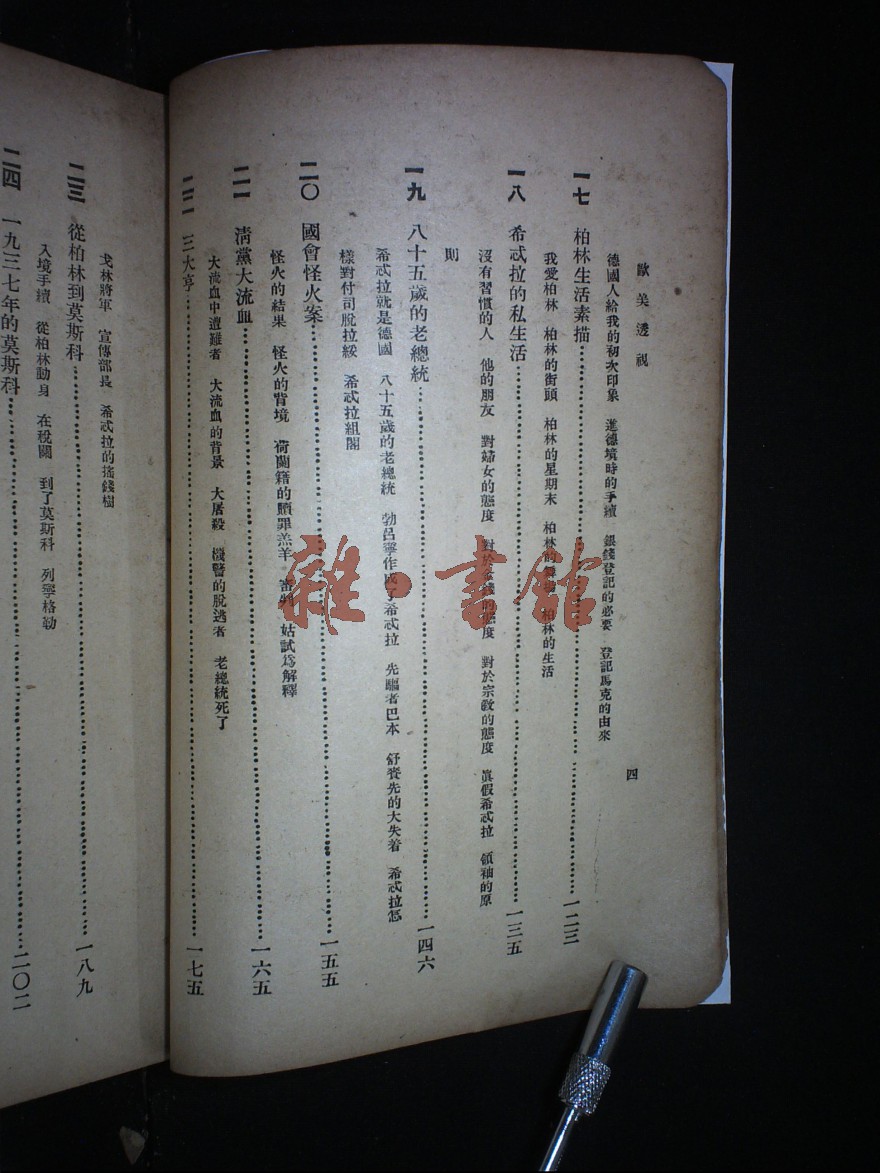 歐美透視
四
德國人給我的初次印象 進德境時的手續 銀錢登記的必要 登記馬克的由來
一七 柏林生活素描 一二三
我愛柏林 柏林的街頭 柏林的星期末 柏林的 柏林的生活
一八 希忒拉的私生活 一三五
沒有習慣的人 他的朋友 對婦女的態度 對於金錢的態度 對於宗敎的態度 眞假希忒拉 領袖的原
則
一九 八十五歲的老總統 一四六
希忒拉就是德國 八十五歲的老總統 勃呂寧作成了希忒拉 先驅者巴本 舒賚先的大失着 希忒拉怎
樣對付司脫拉綏 希忒拉組閣
二〇 國會怪火案 一五五
怪火的結果 怪火的背境 荷蘭籍的贖罪羔羊 審判 姑試爲解釋
二一 淸黨大流血 一六五
大流血中遭難者 大流血的背景 大屠殺 機警的脫逃者 老總統死了
二二 三大亨 一七五
戈林將軍 宣傳部長 希忒拉的搖錢樹
二三 從柏林到莫斯科 一八九
入境手續 從柏林動身 在稅關 到了莫斯科 列寧格勒
二四 一九三七年的莫斯科 二〇二
雜·書館